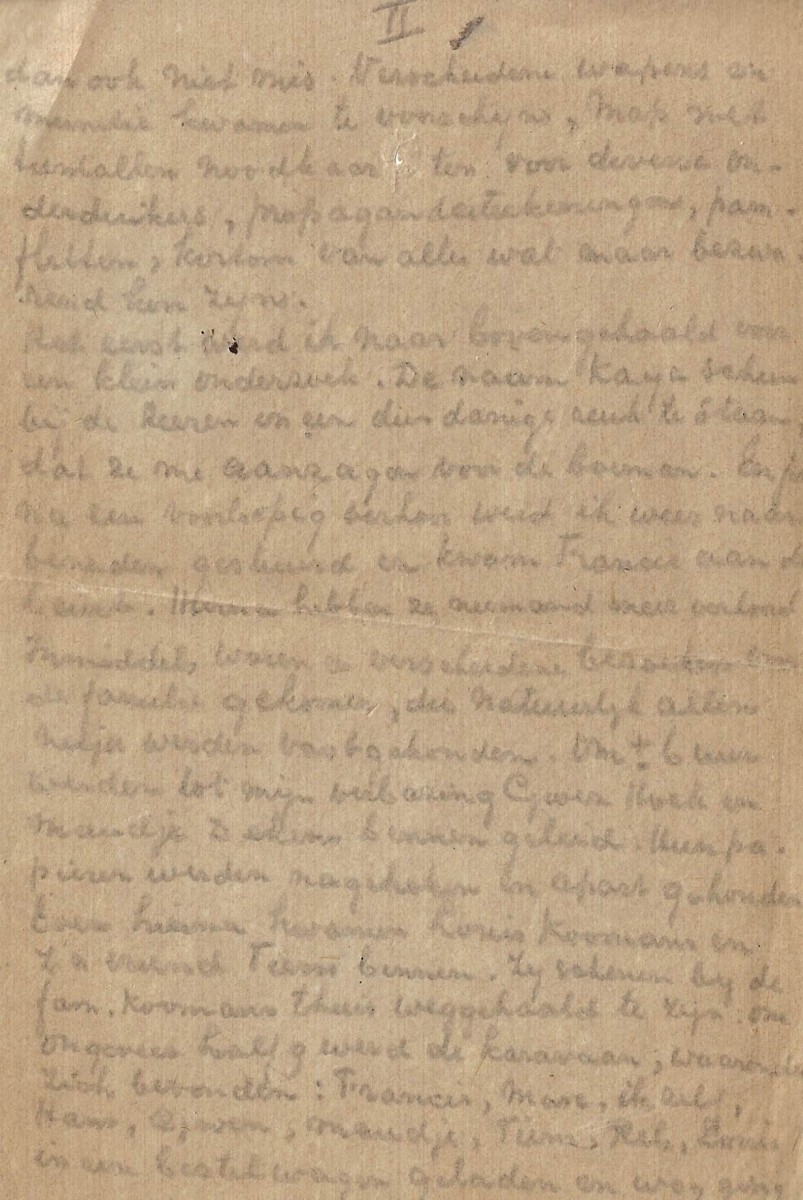 II
dan ook niet mis. Verscheidene wapens en
munitie kwamen te voorschijn, Map met
tientallen noodkaarten voor diverse on-
derduikers, propagandateekeningen, pam-
fletten, kortom van alles wat maar bezwa-
rend kon zijn.
Het eerst werd ik naar boven gehaald voor
een klein onderzoek. De naam Kaya scheen
bij de Heeren in een dusdanige reuk te staan,
dat ze me aanzagen voor de boeman. En
na een voorlopig verhoor werd ik weer naar
beneden gestuurd en kwam Francis aan de
beurt. Hierna hebben ze niemand meer verhoord
Inmiddels waren er verscheidene bezoekers van
de familie gekomen, die natuurlijk allen
netjes werden vastgehouden. Om ± 6 uur
werden tot mijn verbazing Gwen Hoek en
Maudje binnen geleid. Hun pa-
pieren werden nagekeken en apart gehouden
Even hierna kwamen Louis Koomans en
z'n vriend Teens binnen. Zij schenen bij de
fam. Koomans thuis weggehaald te zijn. om
ongeveer half 9 werd de karavaan, waaronder
zich bevonden: Francis, Marc, ik zelf,
Hans, Gwen, Maudje, Louis
in een bestelwagen geladen en weg ging